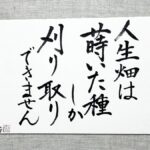 人生畑は
蒔いた種
しか
刈り取り
できません